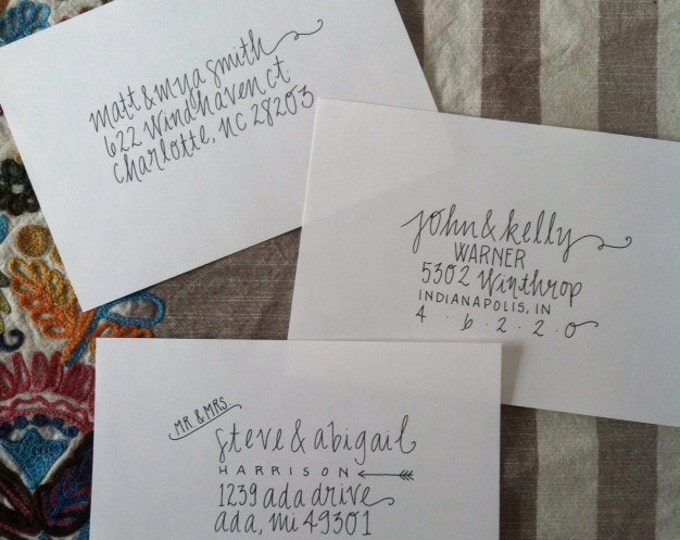 matt & mya smith
622 Windhaven ct
charlotte, nc 28203
john & kelly
WARNER
5302 Winthrop
INDIANAPOLIS, IN
4 . 6 . 2 . 2 . 0
MR & MRS.
steve & abigail
HARRISON
1239 ada drive
ada, mi 49301